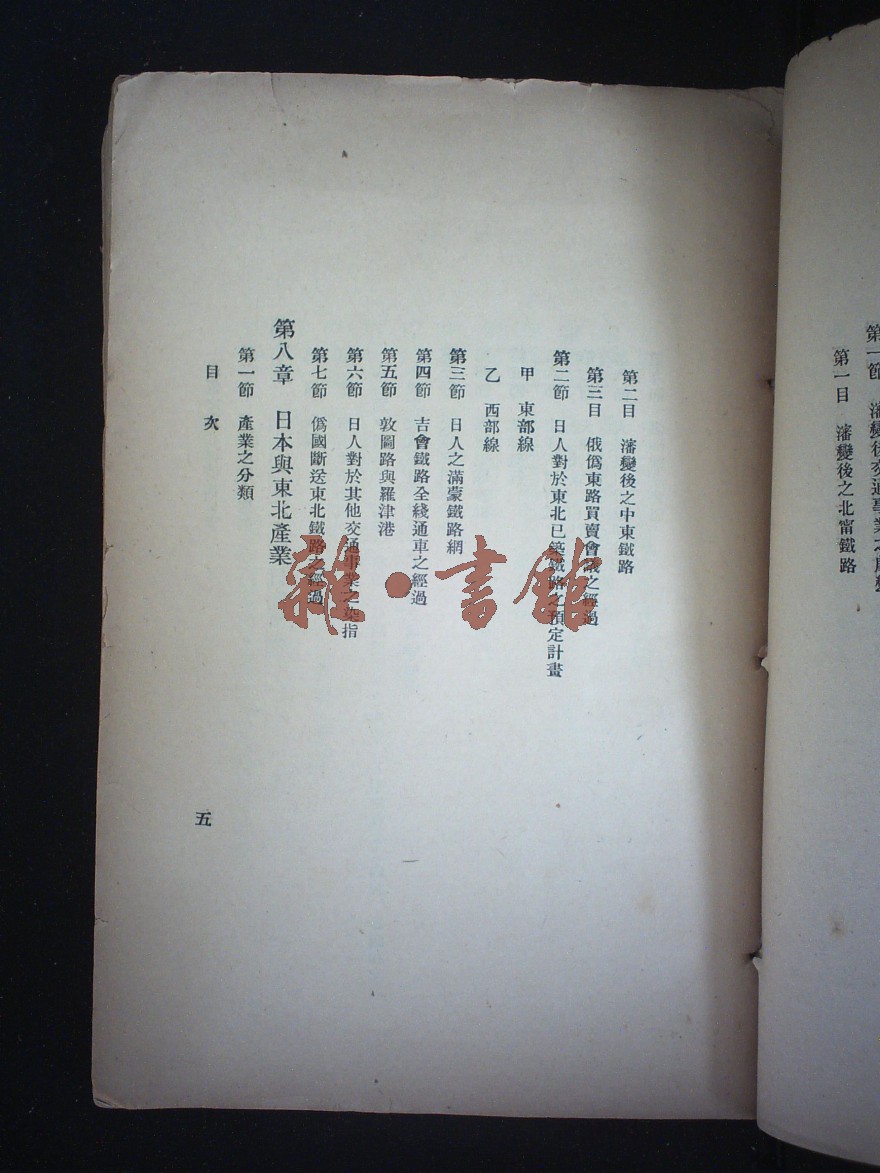 第一節 瀋變後交通事業之
第一目 瀋變後之北甯鐵路
第二目 瀋變後之中東鐵路
第三目 俄僞東路買賣會議之經過
第二節 日人對於東北已築鐵路之預定計畫
甲 東部線
乙 西部線
第三節 日人之滿蒙鐵路網
第四節 吉會鐵路全綫通車之經過
第五節 敦圖路與羅津港
第六節 日人對於其他交通事業之染指
第七節 僞國斷送東北鐵路之經過
第八章 日本與東北產業
第一節 產業之分類
目次
五
雜·書館